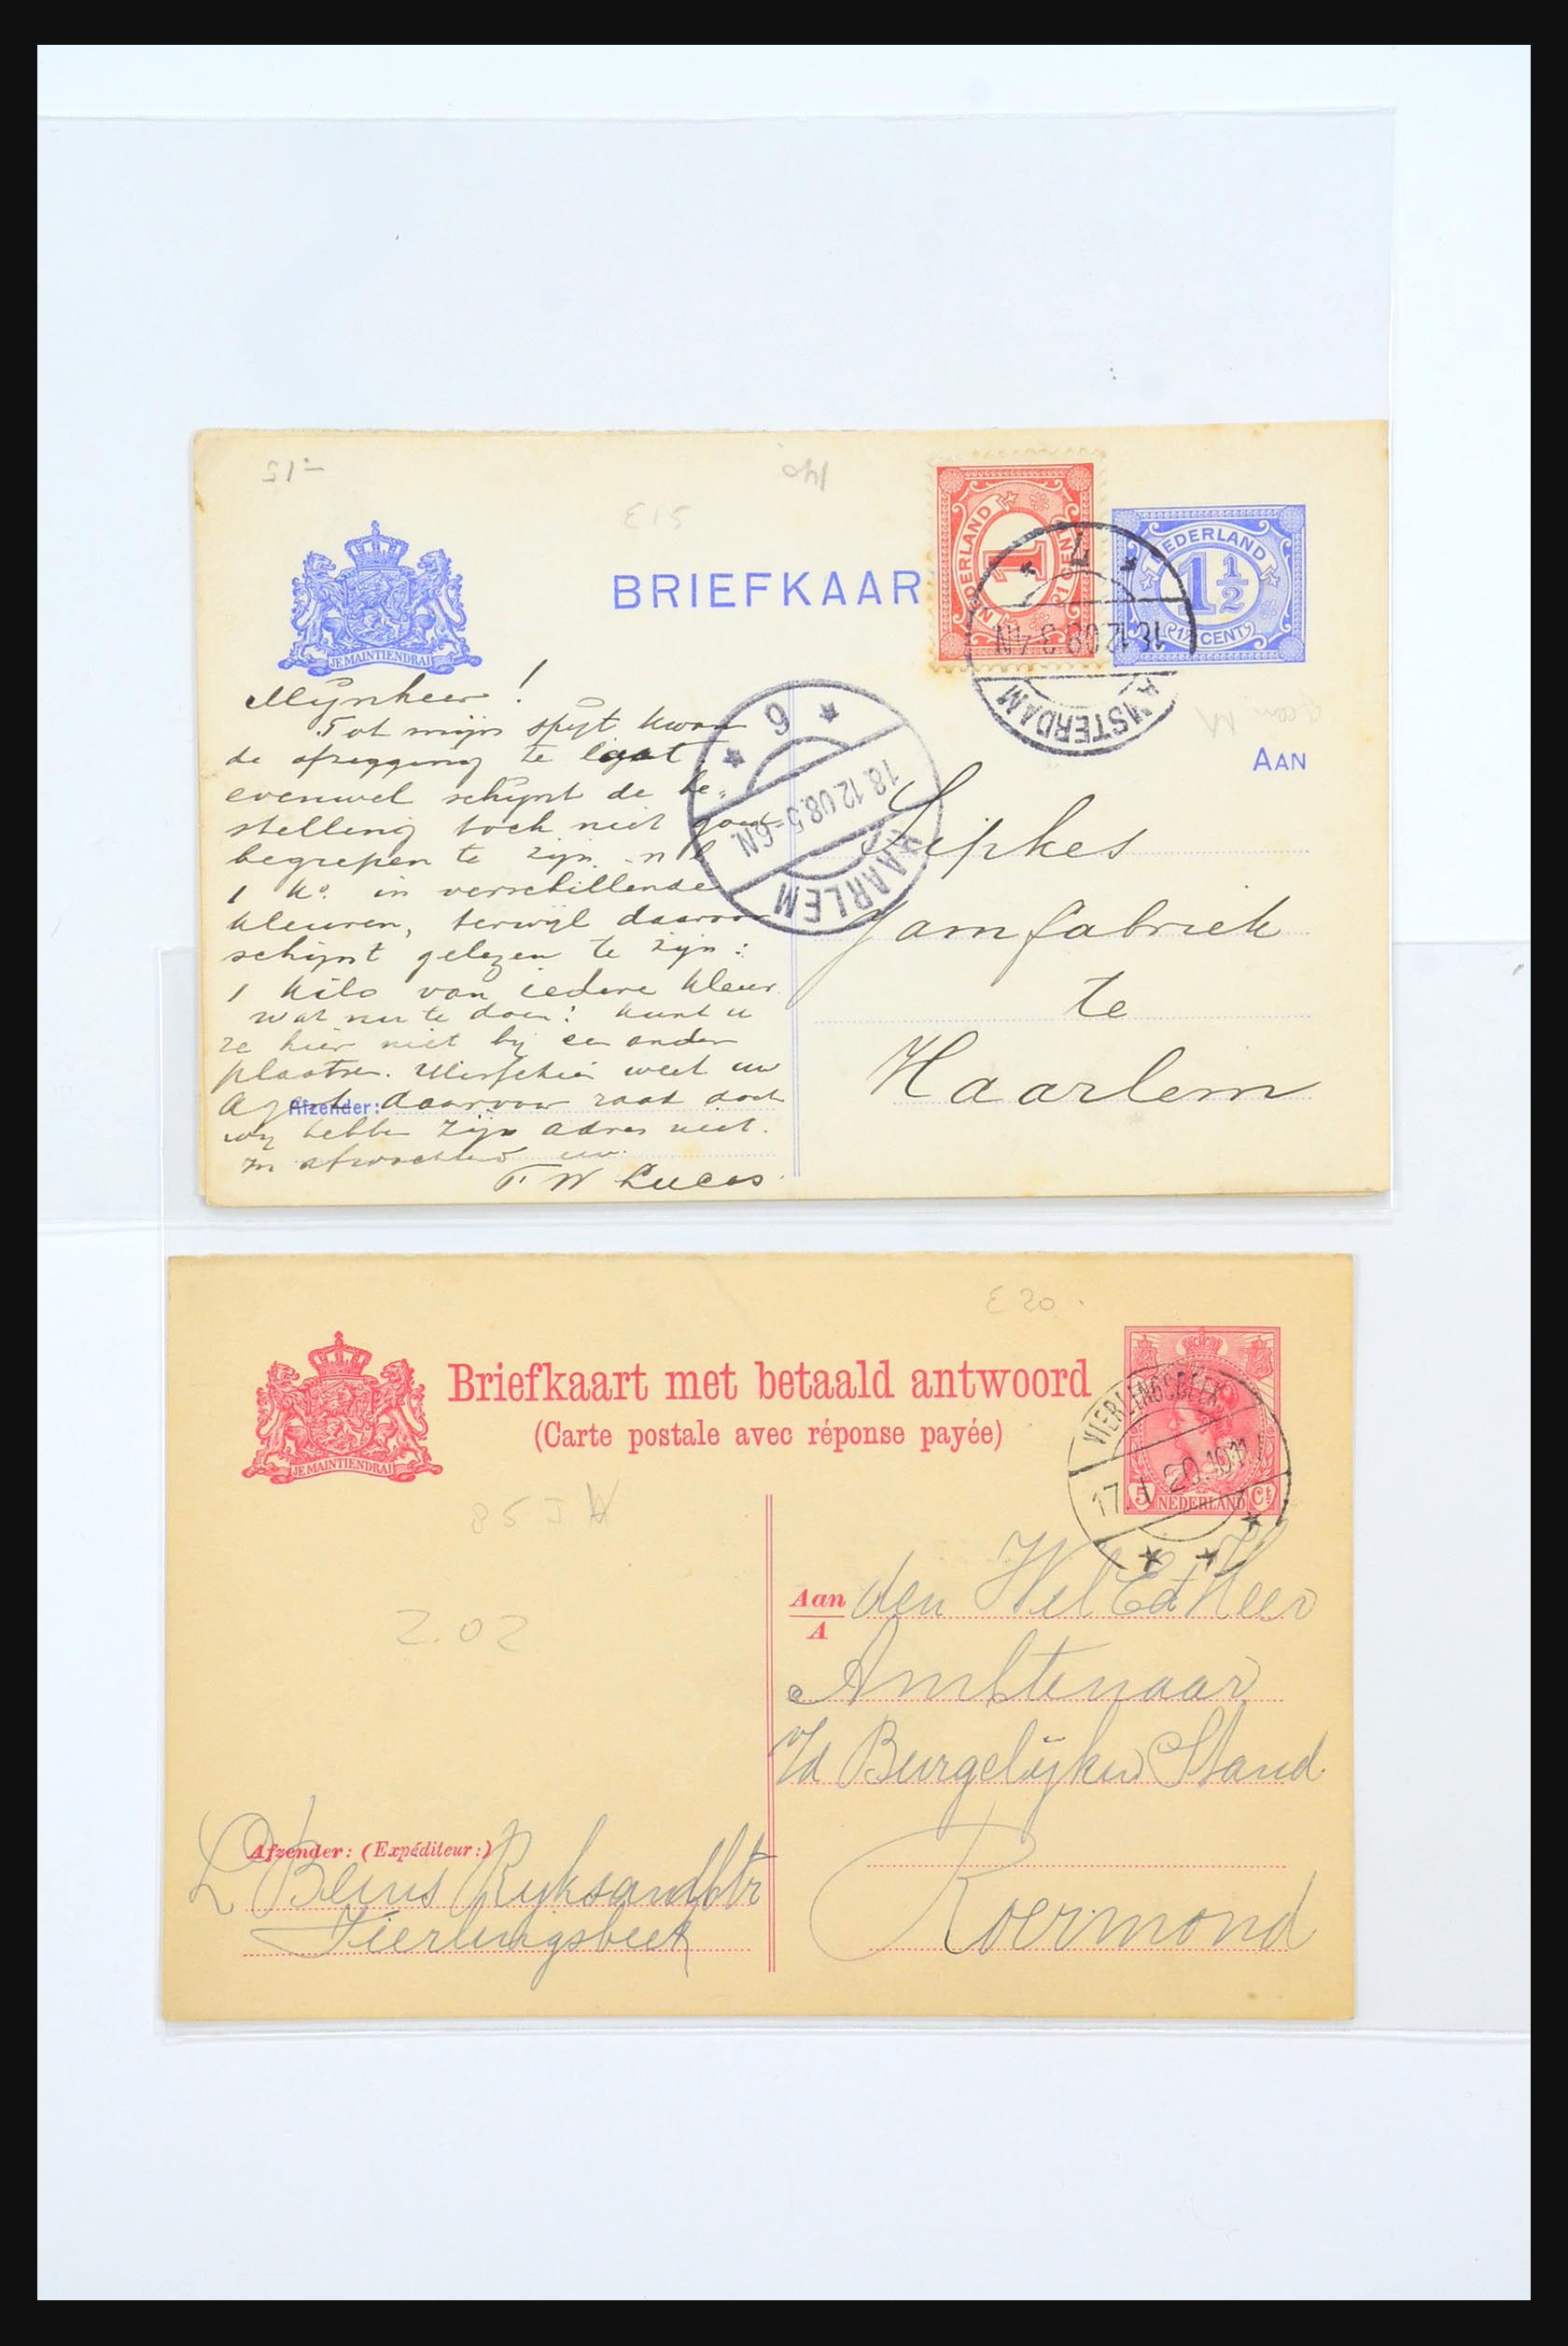 51-
140
E15
BRIEFKAAR
JE MAINTIENDRAI
NEDERLAND
1
1 CENT
NEDERLAND
1½
1½ CENT
AMSTERDAM
7
18.12.08 3-4N
HAARLEM
6
18.12.08.5-6N.
AAN
Sipkes
Jamfabriek
te
Haarlem
Mijnheer!
Tot mijn spijt kwam
de afzegging te laat
evenwel schijnt de be-
stelling toch niet goed
begrepen te zijn. nl
1 Ko. in verschillende
kleuren, terwijl daarvoor
schijnt gelezen te zijn:
1 Kilo van iedere kleur
wat nu te doen: kunt u
ze hier niet bij een ander
plaatsen. Misschien weet uw
Afzender:
Agent daarvoor raad doch
wij hebben zijn adres niet.
In afwachting uw.
F W Lucas.
E 20.
JE MAINTIENDRAI
Briefkaart met betaald antwoord
(Carte postale avec réponse payée)
5 NEDERLAND Ct
VIERLINGSBEEK
85 I
2.02
Aan
A
den Wel Ed Heer
Ambtenaar
v/d Burgelijken Stand
Roermond
Afzender: (Expéditeur:)
L Beins Ryksambtr
Vierlingsbeek